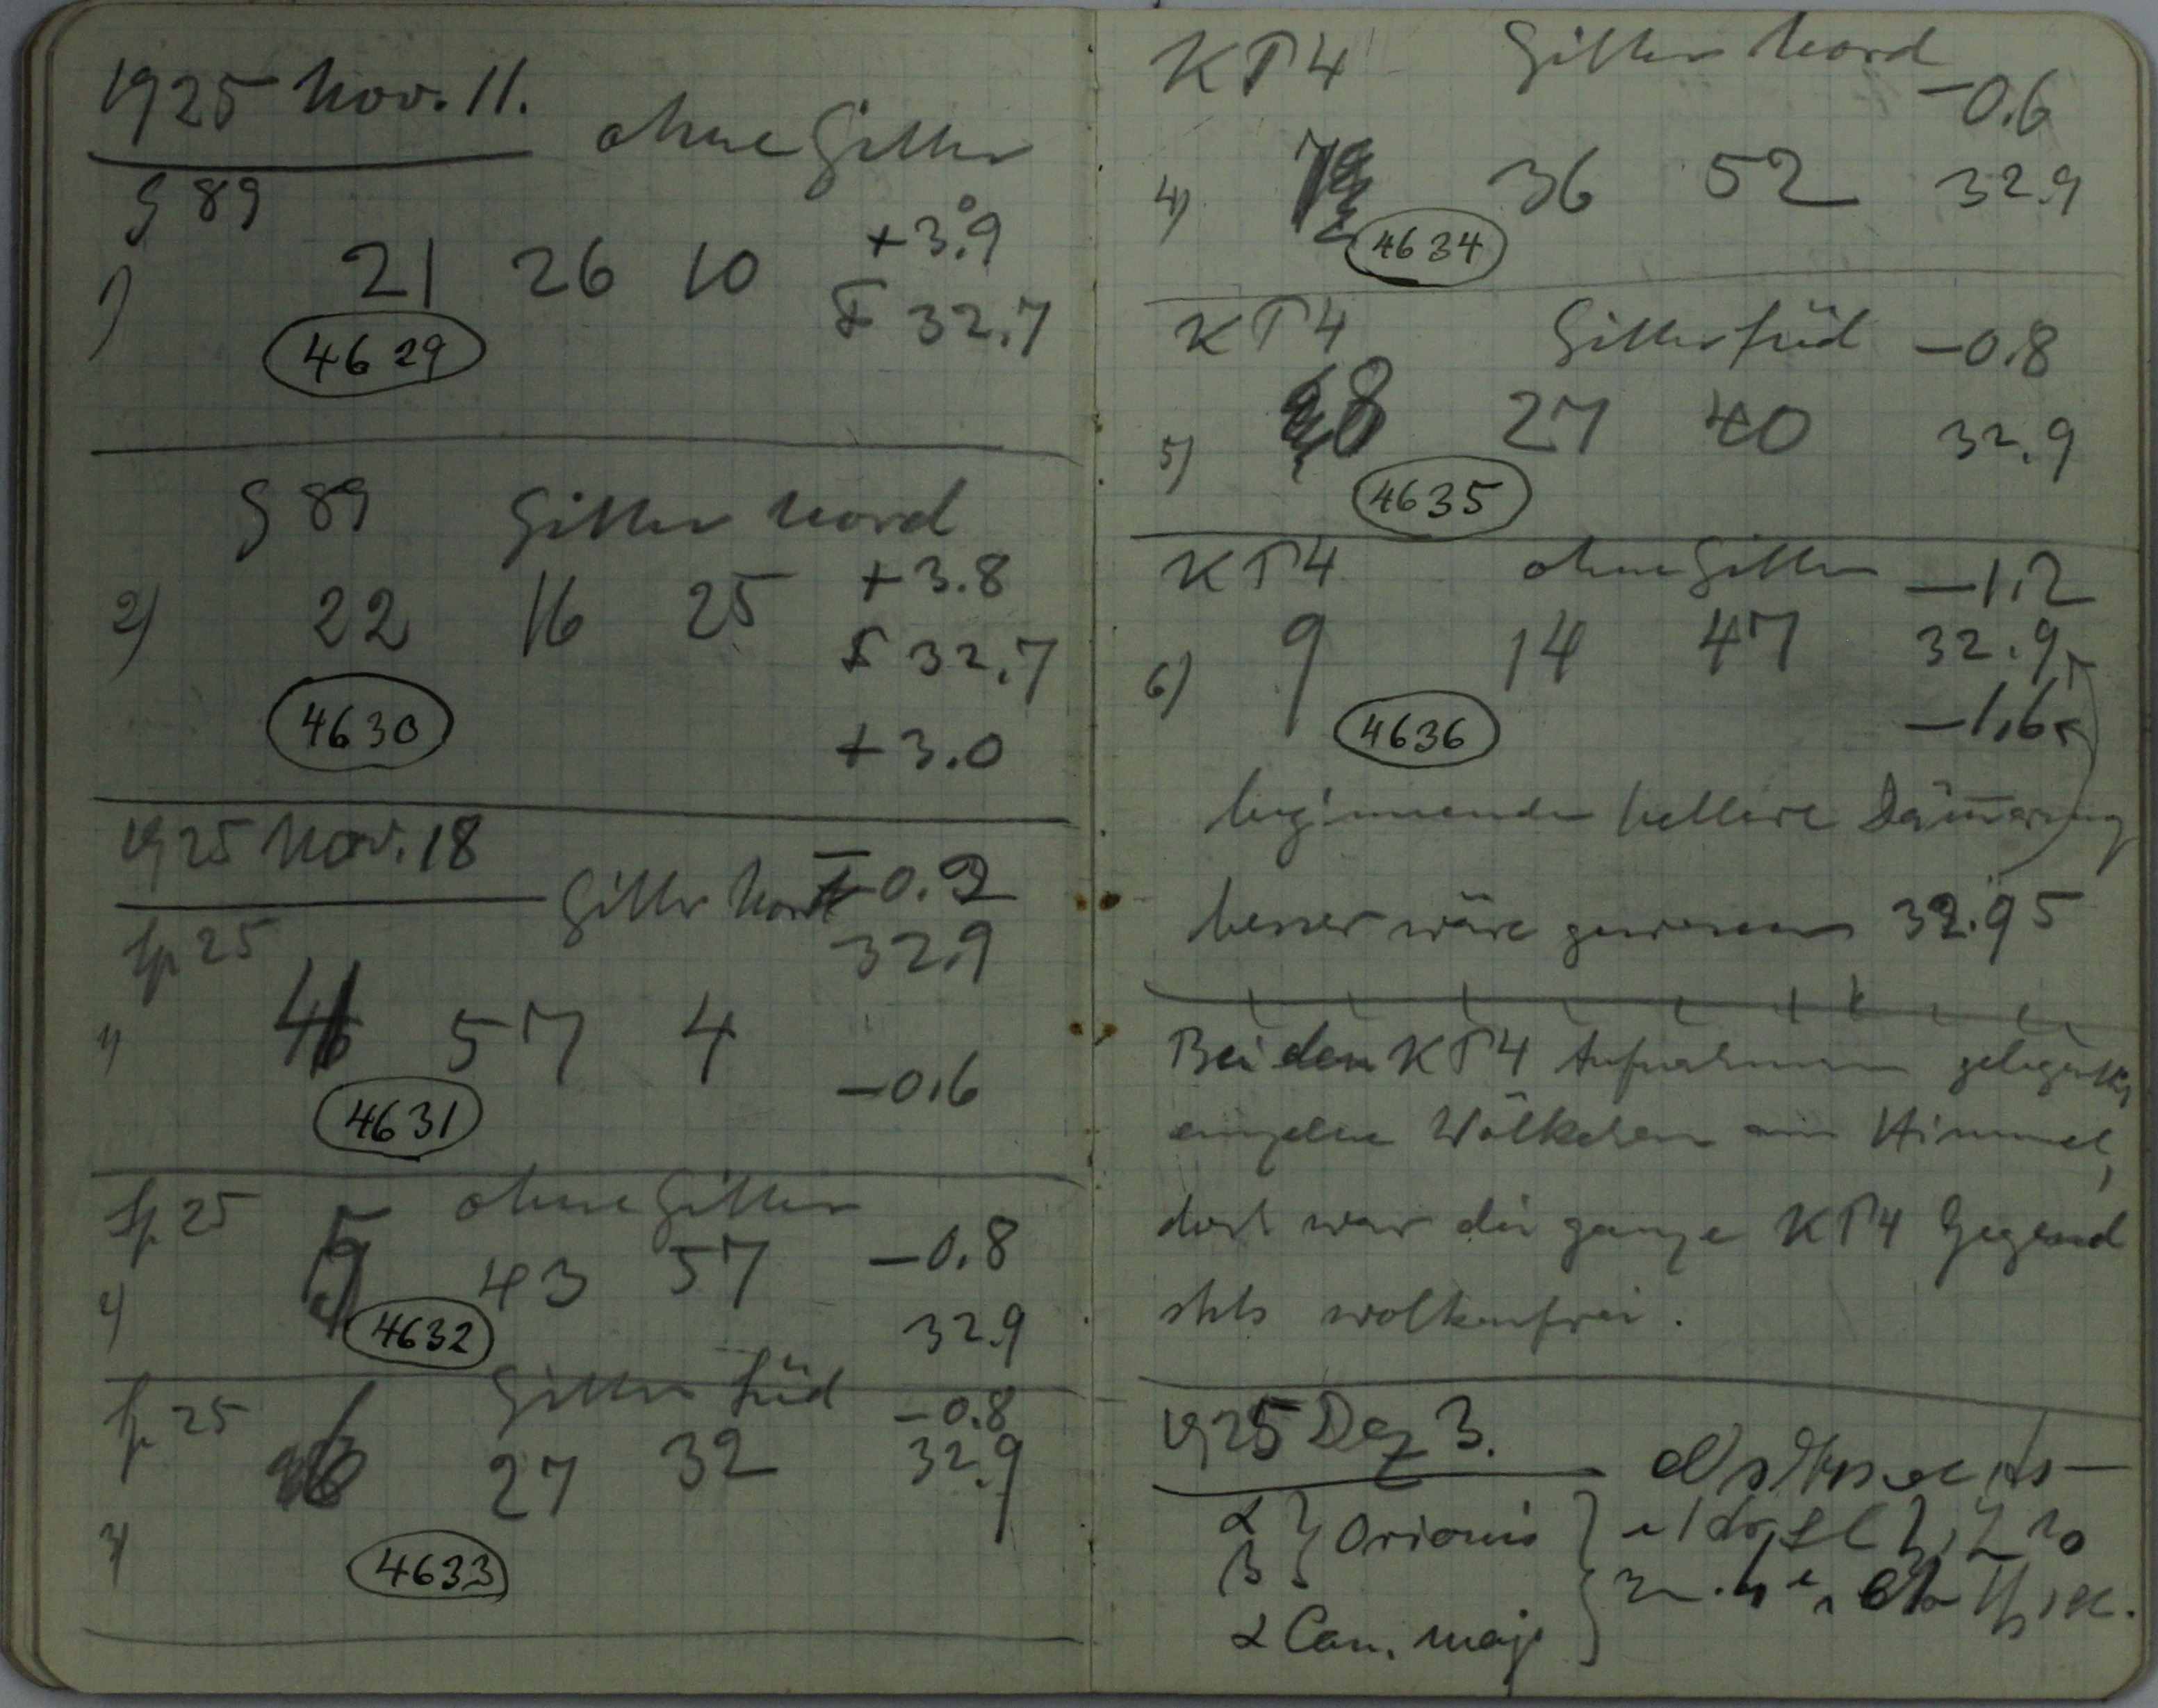 1925 Nov. 11.
ohne Gitter
S 89
+3.°9
1) 21 26 10
F 32.7
4629
S 89 Gitter Nord
+3.8
2) 22 16 25
F 32.7
4630
+3.0
1925 Nov. 18
Gitter Nord -0.2
Sp 25
32.9
1) 4 57 4
-0.6
4631
Sp 25 ohne Gitter
-0.8
2) 5 43 57
32.9
4632
Sp 25 Gitter Süd
-0.8
6 27 32
32.9
3)
4633
KP4 Gitter Nord
-0.6
4) 7 36 52 32.9
4634
KP4 Gitter Süd -0.8
5) 8 27 40 32.9
4635
KP4 ohne Gitter -1.2
6) 9 14 47 32.9
4636
-1.6
beginnende hellere Däm̅erung
besser wäre gewesen 32.95
Bei den KP4 Aufnahmen gelegentl.
einzelne Wölkchen am Himmel,
doch war die ganze KP4 Gegend
stets wolkenfrei.
1925 Dez 3.
α
β } Orionis
α Can. maj.